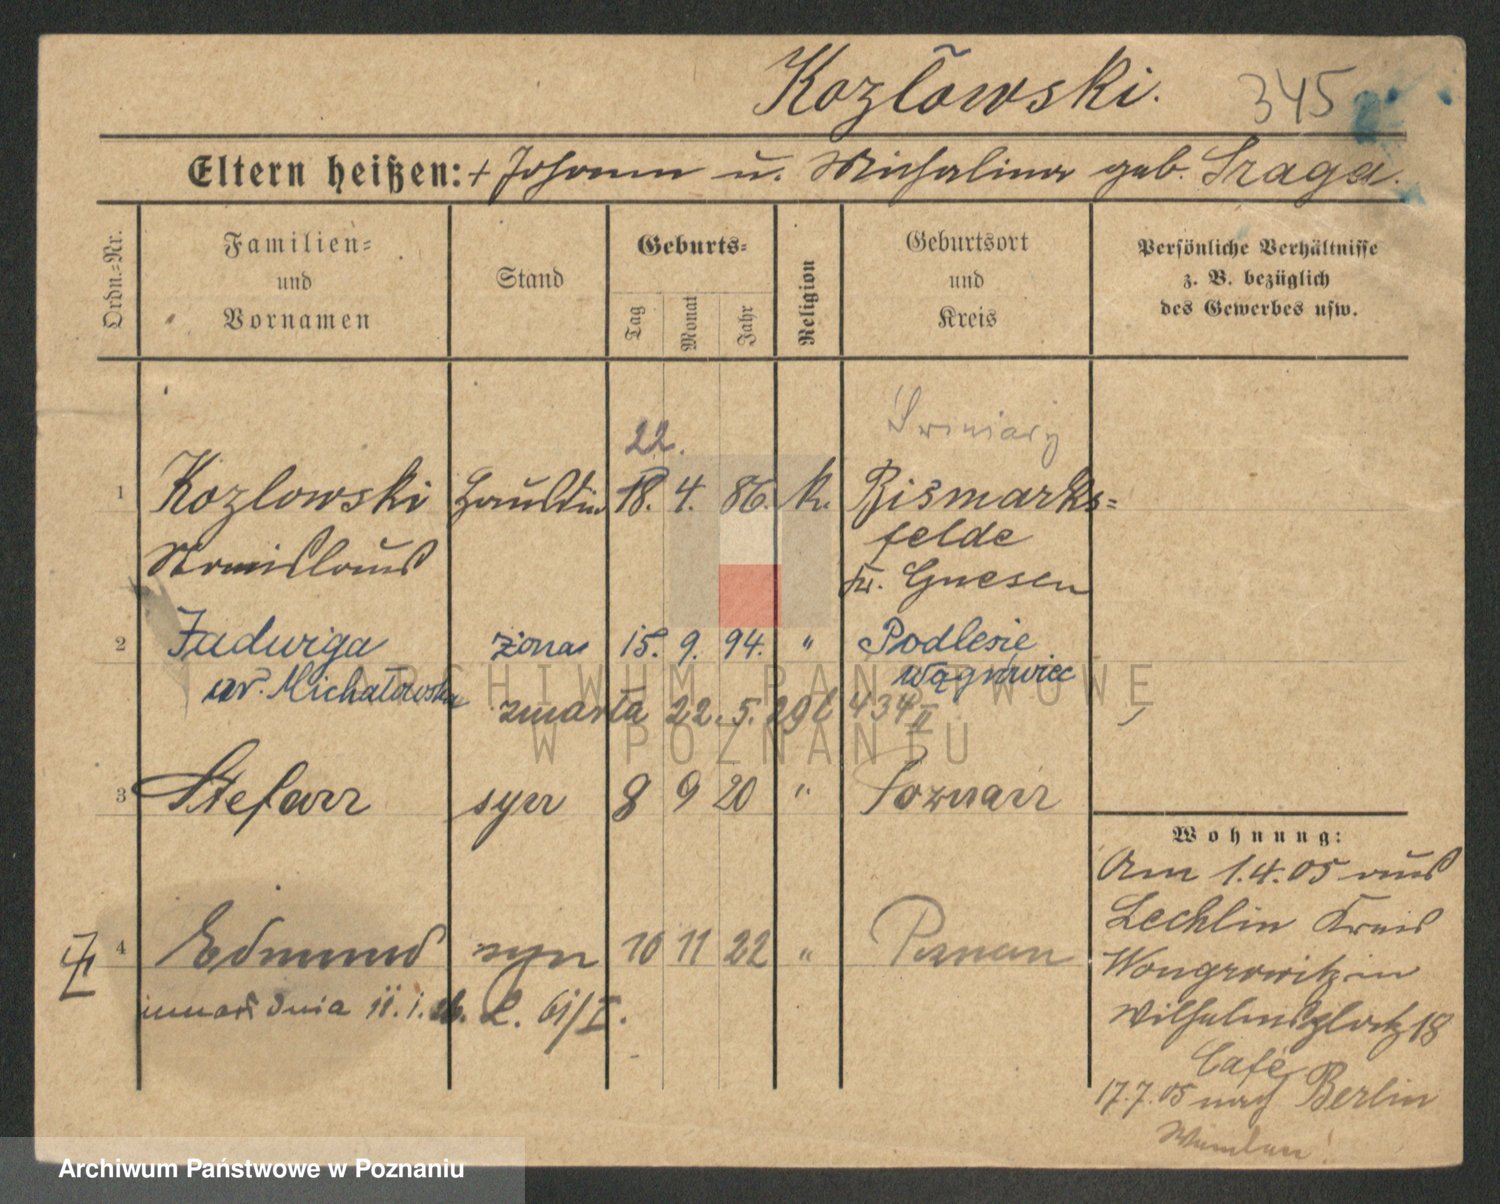 Kozłowski.
345
Eltern heißen: + Johann u. Michalina geb. Szaga.
Ordn.=Nr.
Familien=
und
Vornamen
Stand
Geburts=
Tag
Monat
Jahr
Religion
Geburtsort
und
Kreis
Persönliche Verhältnisse
z. B. bezüglich
des Gewerbes usw.
22.
Swiniary
1 Kozlowski 18. 4. 86. k. Bismarks=
felde
Stanislaus Kr. Gnesen
2 Jadwiga żona 15. 9. 94. " Podlesie
ur. Michałowska Wągrowiec
zmarła 22. 5. 29 434 II
3 Stefan syn 8 9 20 " Poznań
Wohnung:
Am 1.4.05 aus
Lechlin Kreis
Wongrowitz in
Wilhelmsplatz 18
Café
17.7.05 nach Berlin
4 Edmund syn 10 11 22 " Poznan
umarł dnia 11. 1. L. 61/I.
ARCHIWUM PAŃSTWOWE
W POZNANIU
Archiwum Państwowe w Poznaniu